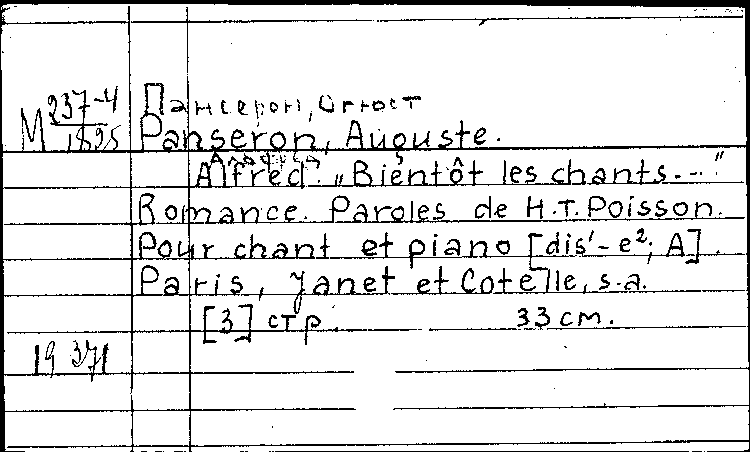 Пансерон, Огюст
М 237-4/1895 Panseron, Auguste.
Alfred. „Bientôt les chants..."
Romance. Paroles de H.T. Poisson.
Pour chant et piano [dis¹-e²; A].
Paris, Janet et Cotelle, s.a.
[3] стр. 33 см.
19 371